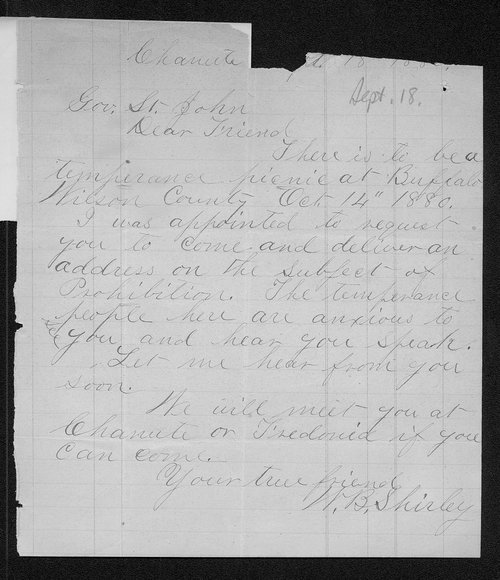 Chanute Sept. 18 1880.
Sept. 18.
Gov. St. John
Dear Friend
There is to be a
temperance picnic at Buffalo
Wilson County Oct 14" 1880.
I was appointed to request
you to come and deliver an
address on the subject of
Prohibition. The temperance
people here are anxious to
see you and hear you speak.
Let me hear from you
soon.
We will meet you at
Chanute or Fredonia if you
can come.
Your true friend
W. B. Shirley